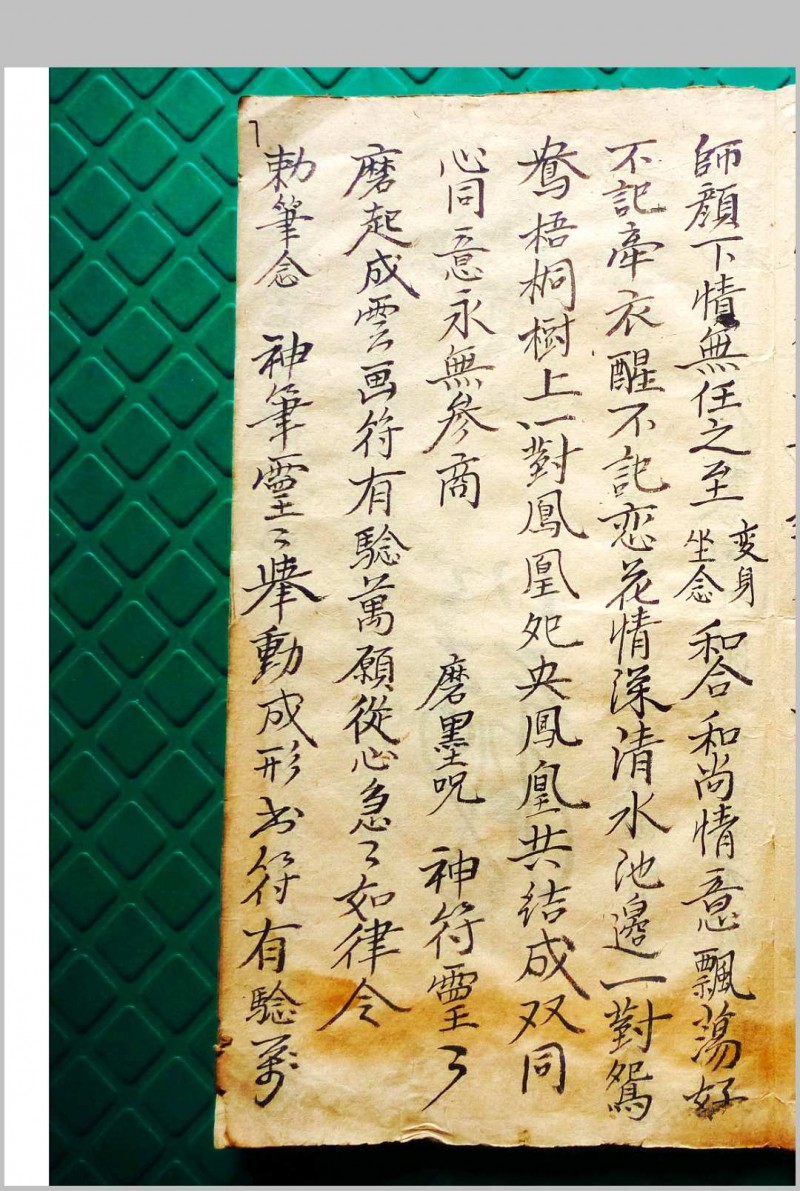 師顔下情無任之至 变身坐念 和合和尚情意飄蕩好
不記牽衣醒不記恋花情深清水池邊一對鴛
鴦梧桐樹上一對鳳凰夗央鳳凰共結成双同
心同意永無参商 磨墨咒 神符靈々
磨起成雲画符有驗萬願從心急々如律令
勅筆念 神筆靈々舉動成形书符有驗萬